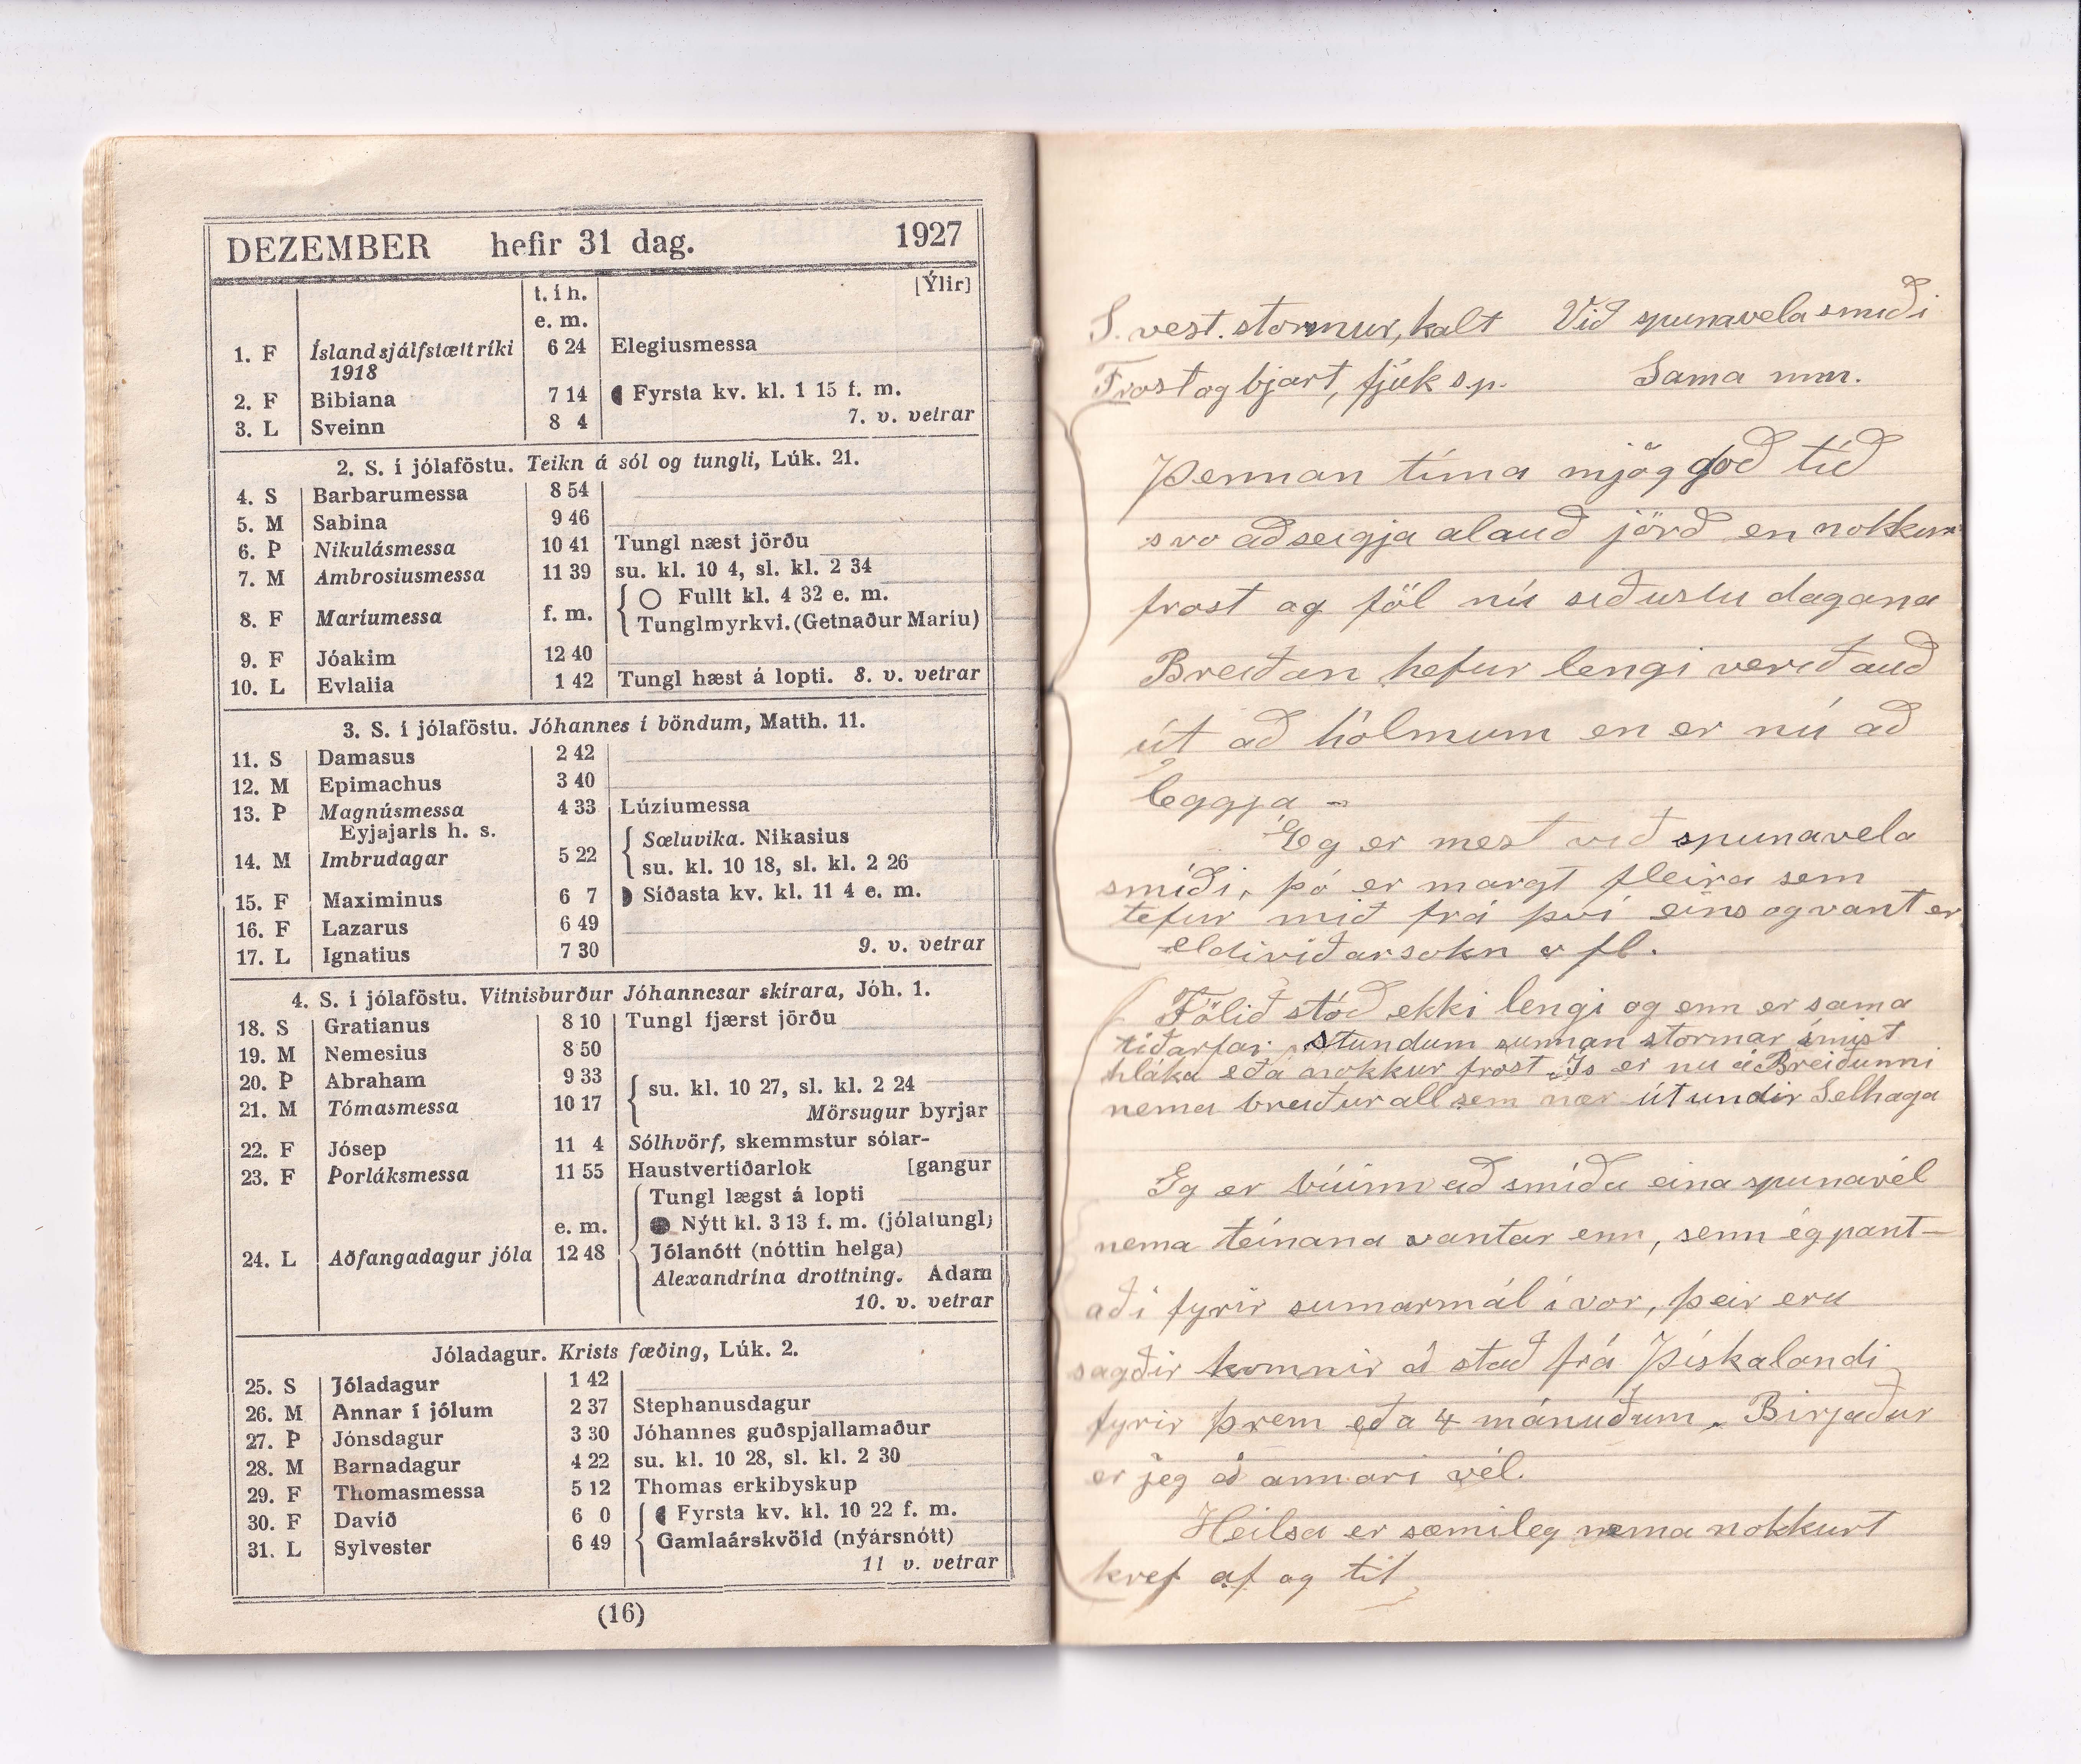 DEZEMBER hefir 31 dag. 1927
[Ýlir]
t. í h.
e. m.
1. F Ísland sjálfstætt ríki 6 24 Elegiusmessa
1918
2. F Bibiana 7 14 Fyrsta kv. kl. 1 15 f. m.
3. L Sveinn 8 4 7. v. vetrar
2. S. í jólaföstu. Teikn á sól og tungli, Lúk. 21.
4. S Barbarumessa 8 54
5. M Sabina 9 46
6. Þ Nikulásmessa 10 41 Tungl næst jörðu
7. M Ambrosiusmessa 11 39 su. kl. 10 4, sl. kl. 2 34
Fullt kl. 4 32 e. m.
8. F Maríumessa f. m. Tunglmyrkvi. (Getnaður Maríu)
9. F Jóakim 12 40
10. L Evlalia 1 42 Tungl hæst á lopti. 8. v. vetrar
3. S. í jólaföstu. Jóhannes í böndum, Matth. 11.
11. S Damasus 2 42
12. M Epimachus 3 40
13. Þ Magnúsmessa 4 33 Lúzíumessa
Eyjajarls h. s.
Sæluvika. Nikasius
14. M Imbrudagar 5 22 su. kl. 10 18, sl. kl. 2 26
15. F Maximinus 6 7 Síðasta kv. kl. 11 4 e. m.
16. F Lazarus 6 49
17. L Ignatius 7 30 9. v. vetrar
4. S. í jólaföstu. Vitnisburður Jóhannesar skírara, Jóh. 1.
18. S Gratianus 8 10 Tungl fjærst jörðu
19. M Nemesius 8 50
20. Þ Abraham 9 33 su. kl. 10 27, sl. kl. 2 24
21. M Tómasmessa 10 17 Mörsugur byrjar
22. F Jósep 11 4 Sólhvörf, skemmstur sólar-
23. F Þorláksmessa 11 55 Haustvertíðarlok [gangur
Tungl lægst á lopti
e. m. Nýtt kl. 3 13 f. m. (jólatungl)
24. L Aðfangadagur jóla 12 48 Jólanótt (nóttin helga)
Alexandrína drottning. Adam
10. v. vetrar
Jóladagur. Krists fæðing, Lúk. 2.
25. S Jóladagur 1 42
26. M Annar í jólum 2 37 Stephanusdagur
27. Þ Jónsdagur 3 30 Jóhannes guðspjallamaður
28. M Barnadagur 4 22 su. kl. 10 28, sl. kl. 2 30
29. F Thomasmessa 5 12 Thomas erkibyskup
30. F Davíð 6 0 Fyrsta kv. kl. 10 22 f. m.
31. L Sylvester 6 49 Gamlaárskvöld (nýársnótt)
11 v. vetrar
(16)
S. vest. stormur, kalt Við spunavela smiði
Frost og bjart, fjúk sp. Sama
Þennan tíma mjög goð tíð
svo að seigja alauð jörð en nokkur
frost og föl nú siðustu dagana
Breiðan hefur lengi verið auð
út að hólmum en er nú að
leggja -
Eg er mest við spunavela
smíði, þó er margt fleira sem
tefur mið frá því eins og vant er
eldiviðarsokn o. fl.
Fölið stóð ekki lengi og enn er sama
tiðarfar, stundum sunnan stormar ímist
hláka eða nokkur frost. Is er nu á Breiðunni
nema breiður all sem nær út undir Selhaga
Eg er búinn að smíða eina spunavél
nema teinana vantar enn, senn ég pant-
aði fyrir sumarmál í vor, þeir eru
sagðir komnir á stað frá Þískalandi
fyrir þrem eða 4 mánuðum. Birjaður
er jeg á annari vél.
Heilsa er sæmileg nema nokkurt
kvef af og til